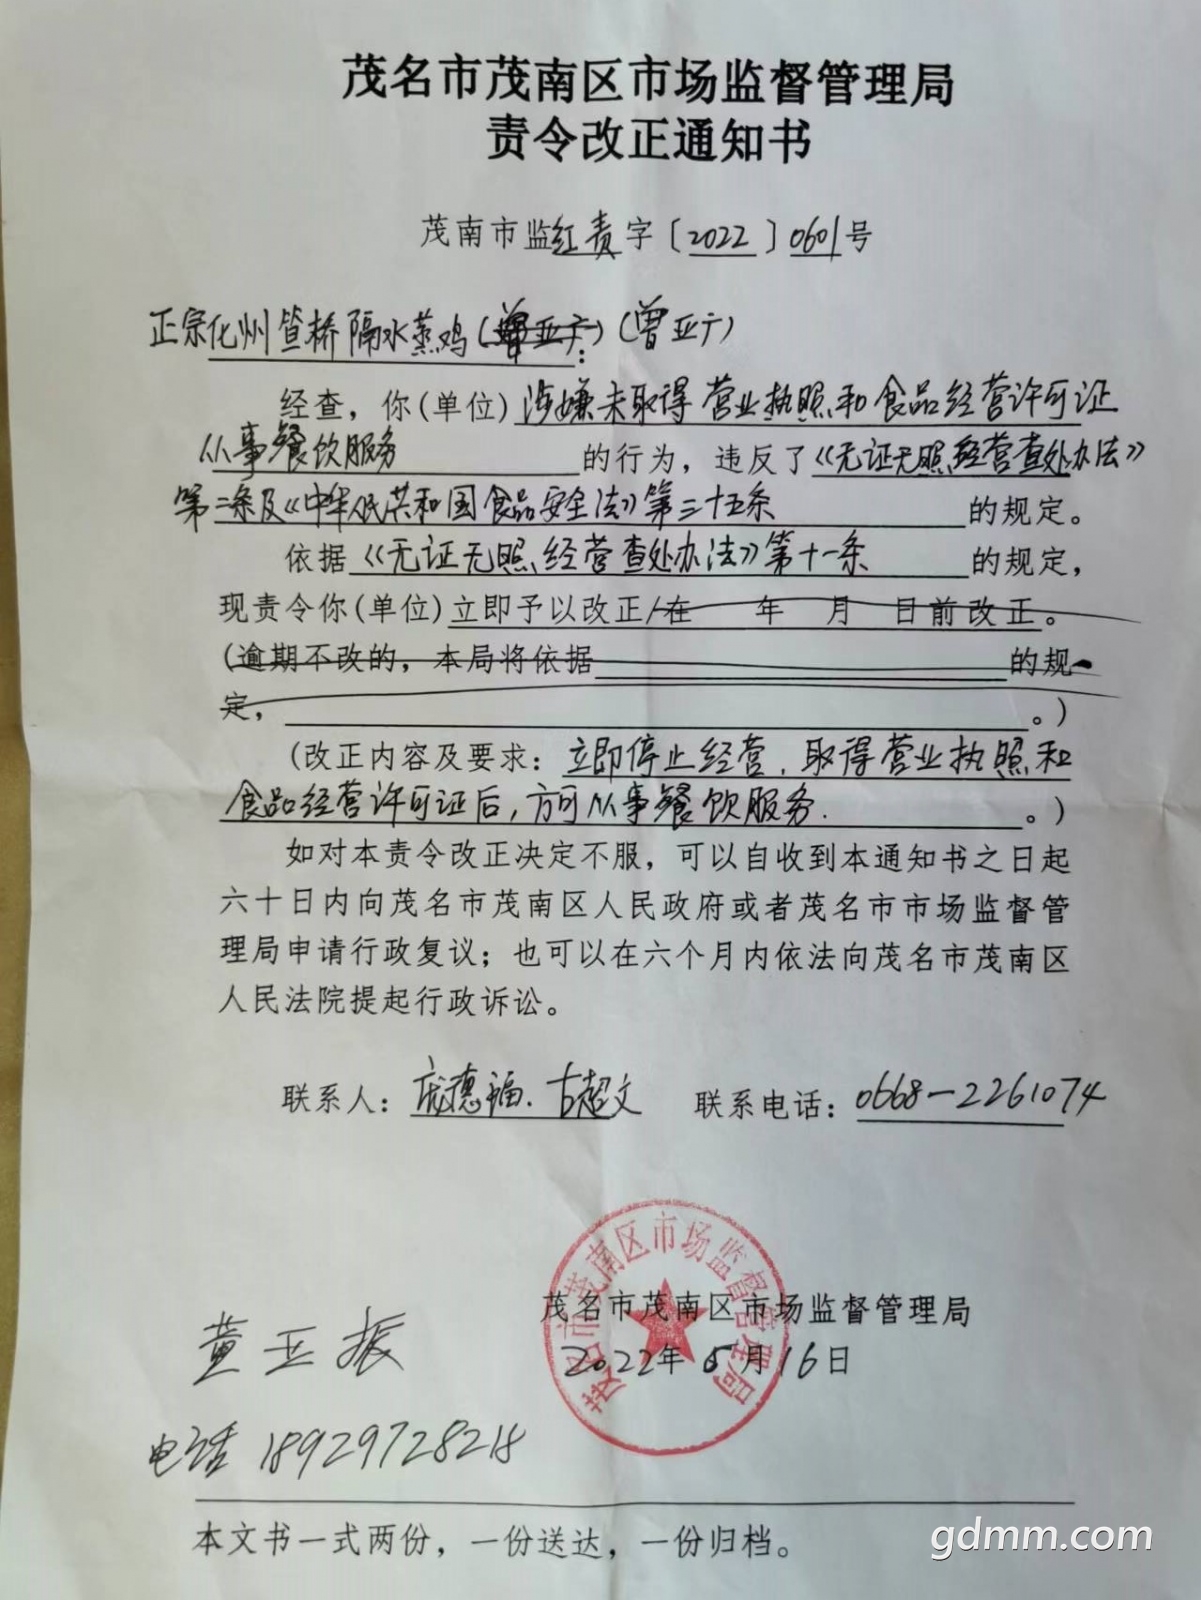 茂名市茂南区市场监督管理局
责令改正通知书
茂南市监红责字〔2022〕0601号
正宗化州笪桥隔水蒸鸡(曾亚广)(曾亚广)
:
经查，你(单位)涉嫌未取得营业执照和食品经营许可证
从事餐饮服务的行为，违反了《无证无照经营查处办法》
第二条及《中华人民共和国食品安全法》第三十五条的规定。
依据《无证无照经营查处办法》第十一条的规定，
现责令你(单位)立即予以改正/在 年 月 日前改正。
(逾期不改的，本局将依据 的规
定， 。)
(改正内容及要求：立即停止经营，取得营业执照和
食品经营许可证后，方可从事餐饮服务. 。)
如对本责令改正决定不服，可以自收到本通知书之日起
六十日内向茂名市茂南区人民政府或者茂名市市场监督管
理局申请行政复议；也可以在六个月内依法向茂名市茂南区
人民法院提起行政诉讼。
联系人：庞德福.古超文 联系电话：0668-2261074
茂名市茂南区市场监督管理局
茂名市茂南区市场监督管理局
2022年5月16日
黄亚振
电话 18929728218
本文书一式两份，一份送达，一份归档。
gdmm.com